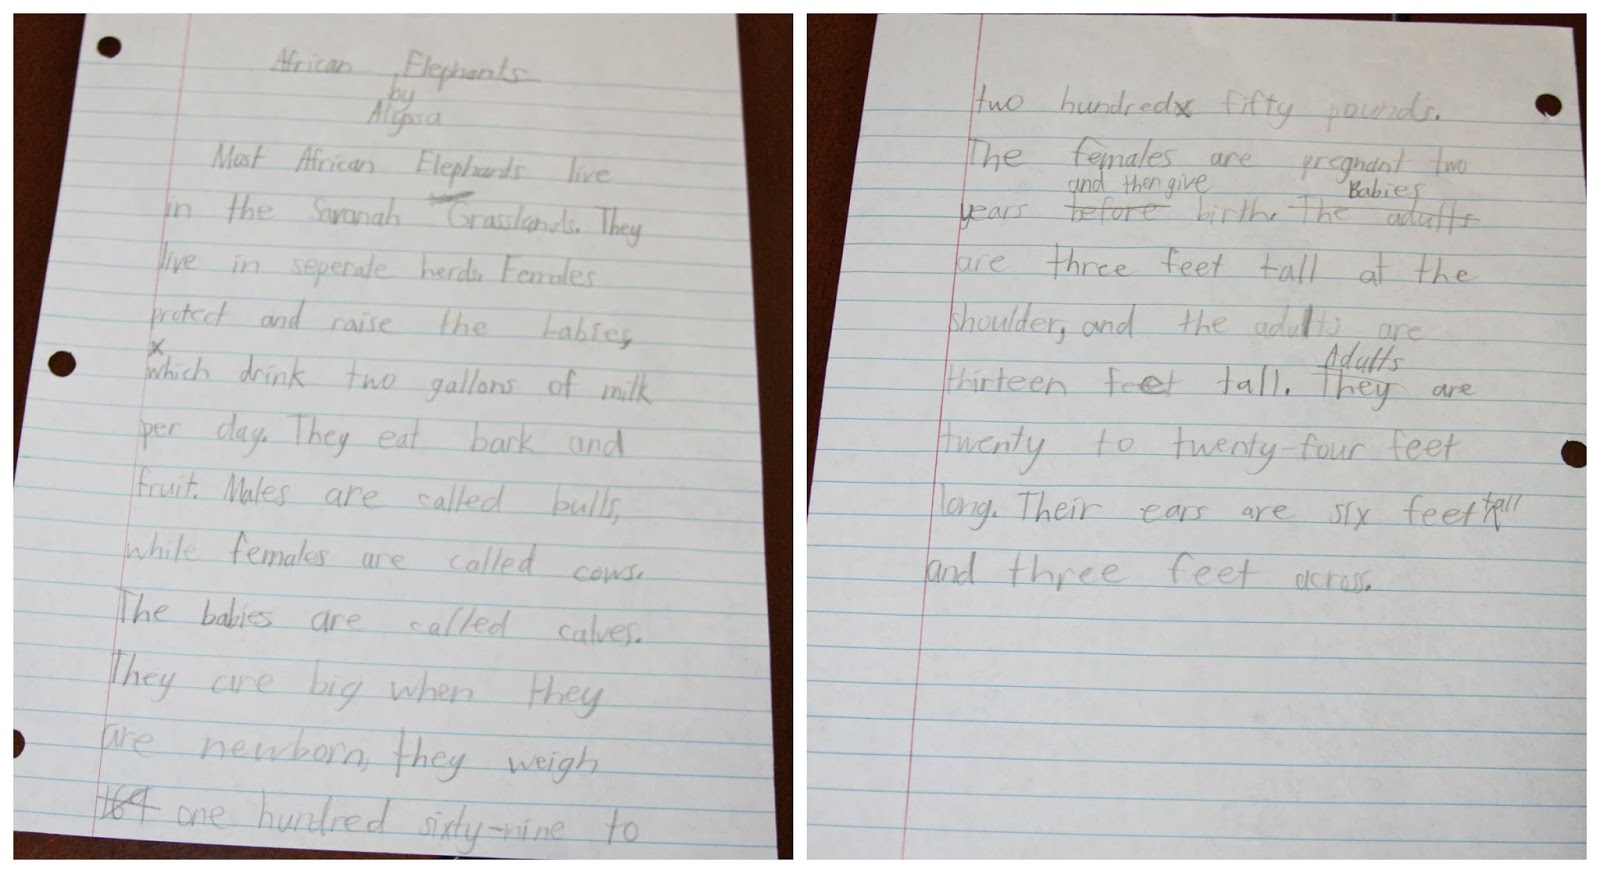 African Elephants
by
Alyssa
Most African Elephants live
in the Savanah Grasslands. They
live in seperate herds. Females
protect and raise the babies,
x
which drink two gallons of milk
per day. They eat bark and
fruit. Males are called bulls,
while females are called cows.
The babies are called calves.
They are big when they
are newborn, they weigh
169 one hundred sixty-nine to
two hundredx fifty pounds.
The females are pregnant two
and then give Babies
years before birth. The adults
are three feet tall at the
shoulder, and the adults are
Adults
thirteen feet tall. They are
twenty to twenty-four feet
long. Their ears are six feet tall
and three feet across.